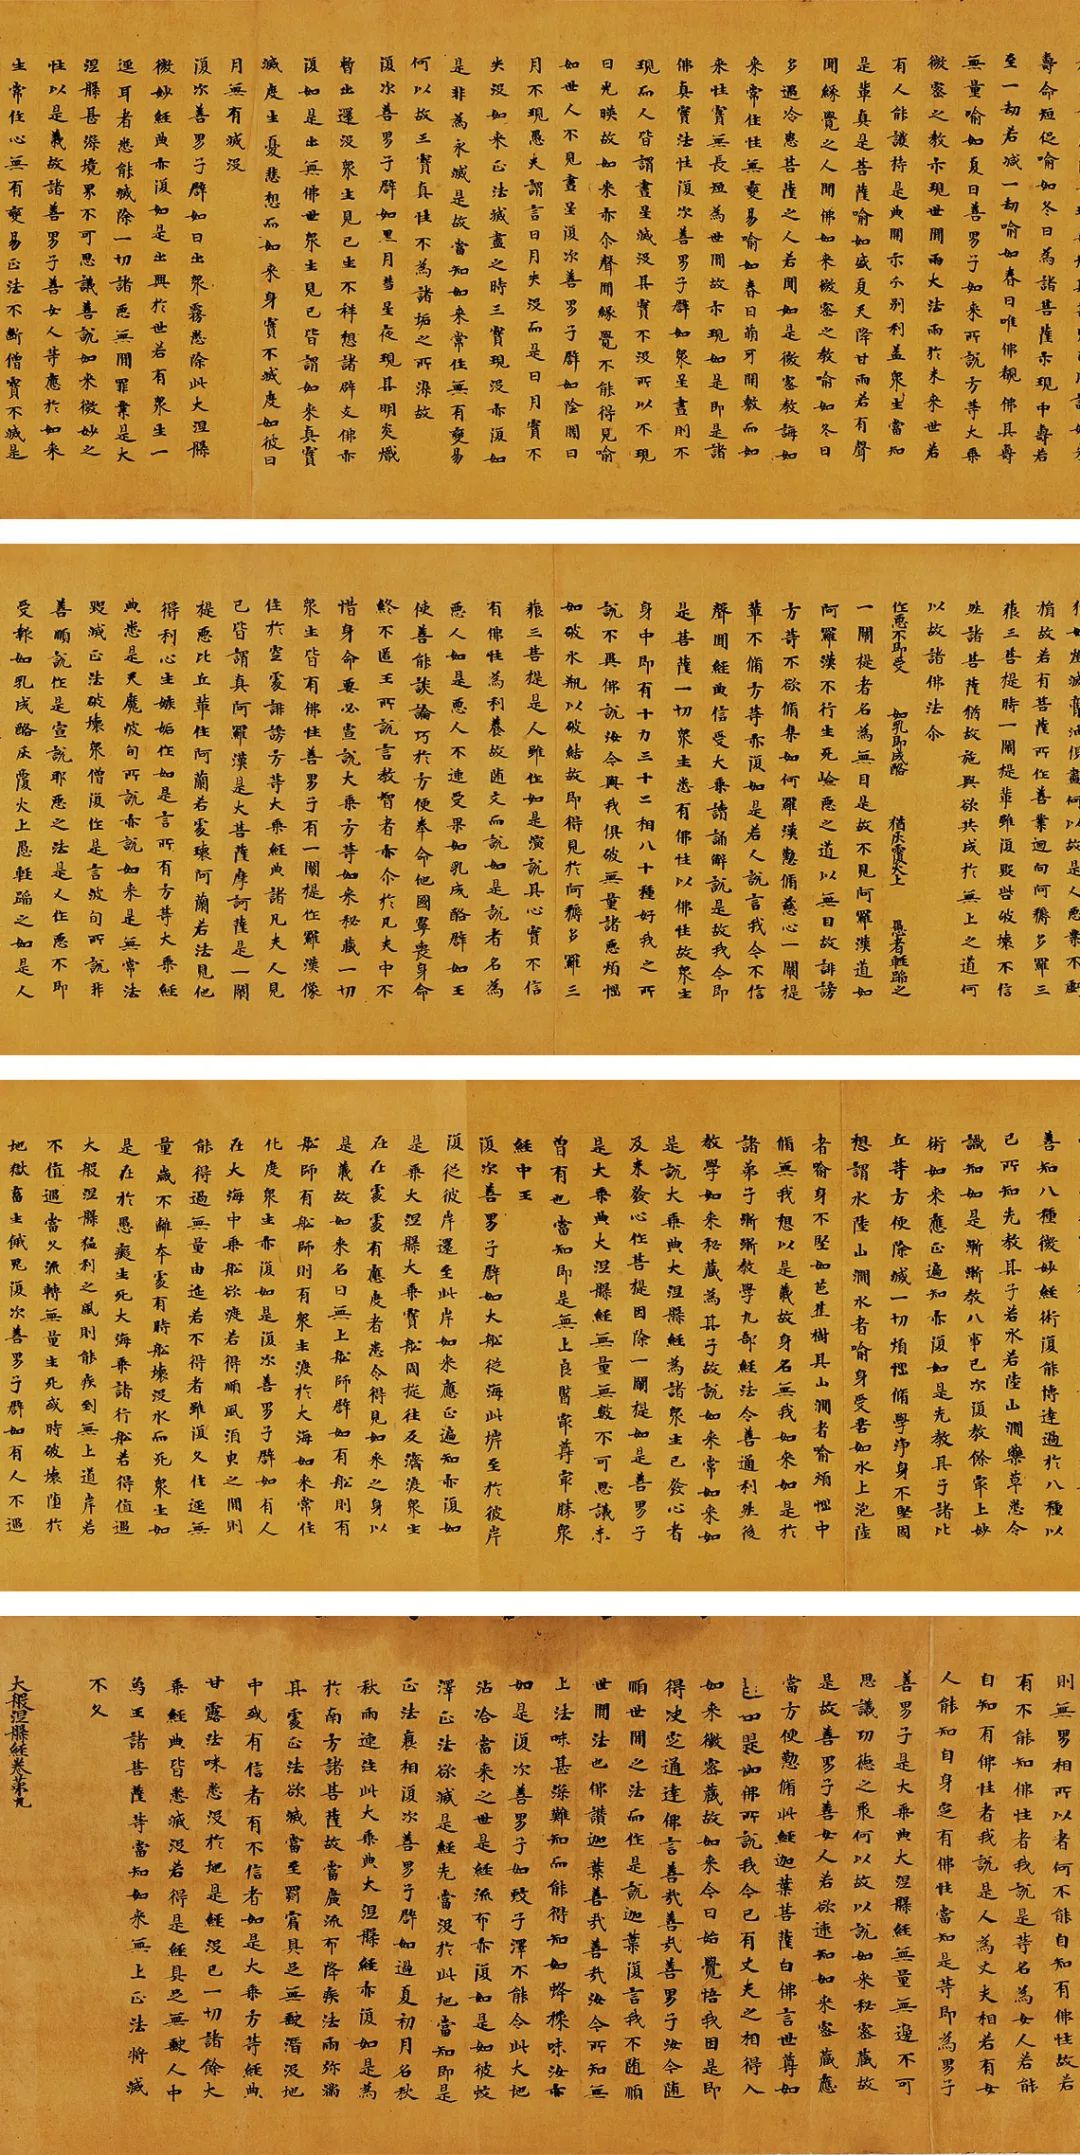 壽命短促喻如冬日為諸菩薩示現中壽若
至一劫若減一劫喻如春日唯佛覩佛其壽
無量喻如夏日善男子如來所說方等大乘
微密之教示現世間雨大法雨於未來世若
有人能護持是典開示分別利益衆生當知
是輩真是菩薩喻如盛夏天降甘雨若有聲
聞緣覺之人聞佛如來微密之教喻如冬日
多遇冷患菩薩之人若聞如是微密教誨如
來常住性無變易喻如春日萌牙開敷而如
來性實無長短為世間故示現如是即是諸
佛真實法性復次善男子譬如衆星晝則不
現而人皆謂晝星滅沒其實不沒所以不現
日光映故如來亦尒聲聞緣覺不能得見喻
如世人不見晝星復次善男子譬如陰闇日
月不現愚夫謂言日月失沒而是日月實不
失沒如來正法滅盡之時三寶現沒亦復如
是非為永滅是故當知如來常住無有變易
何以故三寶真性不為諸垢之所染故
復次善男子譬如黑月彗星夜現其明炎熾
暫出還沒衆生見已生不祥想諸辟支佛亦
復如是出無佛世衆生見已皆謂如來真實
滅度生憂悲想而如來身實不滅度如彼日
月無有滅沒
復次善男子譬如日出衆霧悉除此大涅槃
微妙經典亦復如是出興於世若有衆生一
逕耳者悉能滅除一切諸惡無間罪業是大
涅槃甚深境界不可思議善說如來微妙之
性以是義故諸善男子善女人等應於如來
生常住心無有變易正法不斷僧寶不滅是
楯故若有菩薩所作善業迴向阿耨多羅三
藐三菩提時一闡提輩雖復毀呰破壞不信
然諸菩薩猶故施與欲共成於無上之道何
以故諸佛法尒
作惡不即受 如乳即成酪 猶灰覆火上 愚者輕蹈之
一闡提者名為無目是故不見阿羅漢道如
阿羅漢不行生死嶮惡之道以無目故誹謗
方等不欲脩集如阿羅漢懃脩慈心一闡提
輩不脩方等亦復如是若人說言我今不信
聲聞經典信受大乘讀誦解說是故我今即
是菩薩一切衆生悉有佛性以佛性故衆生
身中即有十力三十二相八十種好我之所
說不異佛說汝今與我俱破無量諸惡煩惱
如破水瓶以破結故即得見於阿耨多羅三
藐三菩提是人雖作如是演說其心實不信
有佛性為利養故隨文而說如是說者名為
惡人如是惡人不速受果如乳成酪譬如王
使善能談論巧於方便奉命他國寧喪身命
終不匿王所說言教智者亦尒於凡夫中不
惜身命要必宣說大乘方等如來秘藏一切
衆生皆有佛性善男子有一闡提作羅漢像
住於空處誹謗方等大乘經典諸凡夫人見
已皆謂真阿羅漢是大菩薩摩訶薩是一闡
提惡比丘輩住阿蘭若處壞阿蘭若法見他
得利心生嫉妬作如是言所有方等大乘經
典悉是天魔波旬所說亦說如來是無常法
毀滅正法破壞衆僧復作是言波旬所說非
善順說作是宣說耶惡之法是人作惡不即
受報如乳成酪灰覆火上愚輕蹈之如是人
善知八種微妙經術復能博達過於八種以
己所知先教其子若水若陸山澗藥草悉令
識知如是漸漸教八事已次復教餘寂上妙
術如來應正遍知亦復如是先教其子諸比
丘等方便除滅一切煩惱脩學淨身不堅固
想謂水陸山澗水者喻身受苦如水上泡陸
者喻身不堅如芭蕉樹其山澗者喻煩惱中
脩無我想以是義故身名無我如來如是於
諸弟子漸漸教學九部經法令善通利然後
教學如來秘藏為其子故說如來常如來如
是說大乘典大涅槃經為諸衆生已發心者
及未發心作菩提因除一闡提如是善男子
是大乘典大涅槃經無量無數不可思議未
曾有也當知即是無上良醫寂尊寂勝衆
經中王
復次善男子譬如大舩從海此岸至於彼岸
復從彼岸還至此岸如來應正遍知亦復如
是乘大涅槃大乘寶舩周旋往反濟渡衆生
在在處處有應度者悉令得見如來之身以
是義故如來名曰無上舩師譬如有舩則有
舩師有舩師則有衆生渡於大海如來常住
化度衆生亦復如是復次善男子譬如有人
在大海中乘舩欲渡若得順風須臾之間則
能得過無量由逕若不得者雖復久住逕無
量歲不離本處有時舩壞沒水而死衆生如
是在於愚癡生死大海乘諸行舩若得值遇
大般涅槃猛利之風則能疾到無上道岸若
不值遇當久流轉無量生死或時破壞墮於
地獄畜生餓鬼復次善男子譬如有人不遇
則無男相所以者何不能自知有佛性故若
有不能知佛性者我說是等名為女人若能
自知有佛性者我說是人為丈夫相若有女
人能知自身定有佛性當知是等即為男子
善男子是大乘典大涅槃經無量無邊不可
思議功德之聚何以故以說如來秘密藏故
是故善男子善女人若欲速知如來密藏應
當方便懃脩此經迦葉菩薩白佛言世尊如
是如是如佛所說我今已有丈夫之相得入
如來微密藏故如來今日始覺悟我因是即
得決定通達佛言善哉善哉善男子汝今隨
順世間之法而作是說迦葉復言我不隨順
世間法也佛讚迦葉善哉善哉汝今所知無
上法味甚深難知而能得知如蜂採味汝亦
如是復次善男子如蚊子澤不能令此大地
沾洽當來之世是經流布亦復如是如彼蚊
澤正法欲滅是經先當沒於此地當知即是
正法衰相復次善男子譬如過夏初月名秋
秋雨連注此大乘典大涅槃經亦復如是為
於南方諸菩薩故當廣流布降疾法雨弥滿
其處正法欲滅當至罽賓具足無缺潛沒地
中或有信者有不信者如是大乘方等經典
甘露法味悉沒於地是經沒已一切諸餘大
乘經典皆悉滅沒若得是經具足無缺人中
為王諸菩薩等當知如來無上正法將滅
不久
大般涅槃經卷第九